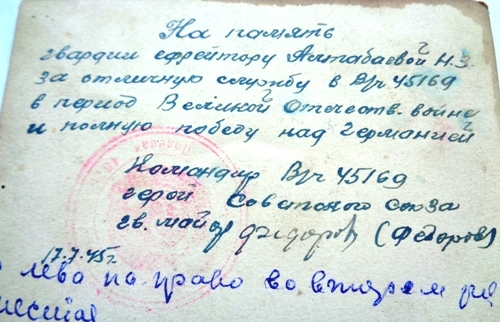 На память
гвардии ефрейтору Алтабаевой Н.З.
за отличную службу в В/ч 45169
в период Великой Отечеств. войны
и полную победу над Германией
Командир В/ч 45169
герой Советского союза
гв. майор Федоров (Федоров)
17.7.45г.
лева на право во втором ря